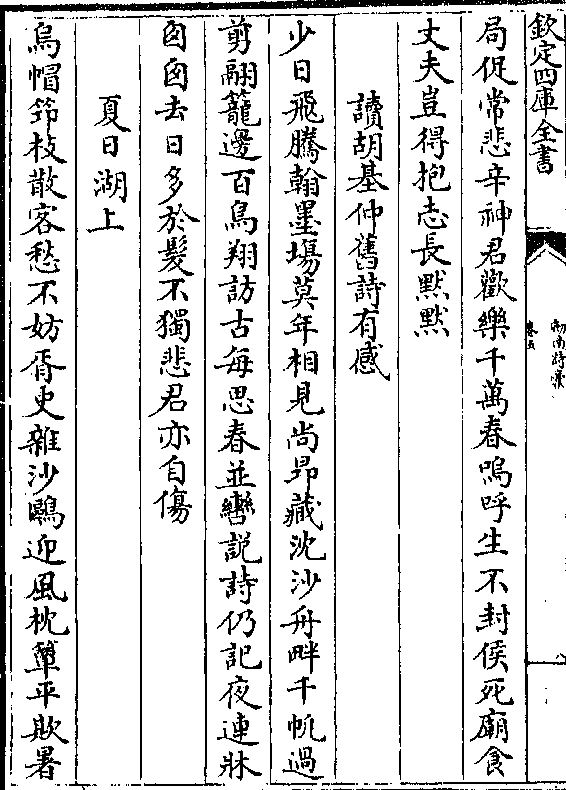 欽定四庫全書
劍南詩槀
卷五
八
局促常悲辛神君歡樂千萬春嗚呼生不封侯死廟食
丈夫豈得抱志長黙黙
讀胡基仲舊詩有感
少日飛騰翰墨塲莫年相見尚昻藏沈沙舟畔千帆過
剪翮籠邊百鳥翔訪古每思春並轡説詩仍記夜連牀
囱囱去日多於髪不獨悲君亦自傷
夏日湖上
烏帽筇枝散客愁不妨胥史雜沙鷗迎風枕簟平欺暑